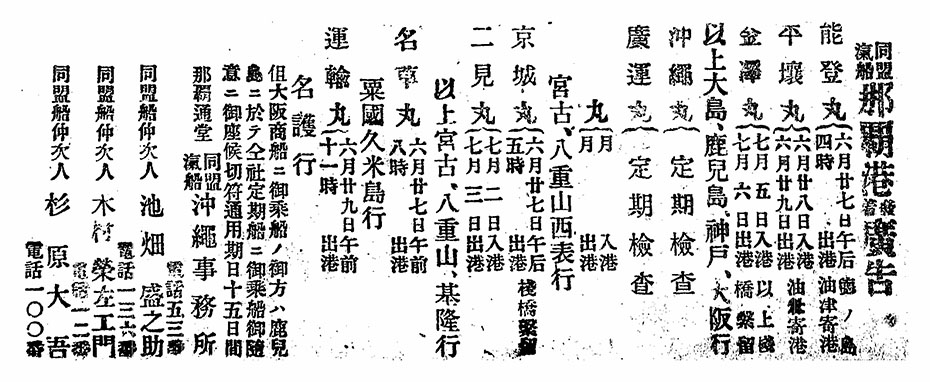 同盟
滊船 那覇港發着廣告
能登丸 六月廿七日午后 四時 出港 油津寄港
平壤丸 六月廿八日入港 六月廿九日出港 油津寄港
金澤丸 七月五日入港 七月六日出港 以上棧橋繫留
以上大島、鹿兒島、神戸、大阪行
沖繩丸 定期檢査
廣運丸 定期檢査
宮古、八重山西表行
丸 月 入港 月 出港
京城丸 六月廿七日午后 五時 出港 棧橋繫留
二見丸 七月二日入港 七月三日出港
以上宮古、八重山、基隆行
名草丸 六月廿七日午后 八時 出港
粟國久米島行
運輸丸 六月廿九日午前 十一時 出港
名護行
但大阪商船ニ御乘船ノ御方ハ鹿兒
島ニ於テ仝社定期船ニ御乘船御隨
意ニ御座候切符通用期日十五日間
那覇通堂 同盟滊船 沖繩事務所
電話五三番
同盟船仲次人 池畑盛之助
電話一三六番
同盟船仲次人 木村榮左工門
電話一二番
同盟船仲次人 杉原大吾
電話一〇〇番